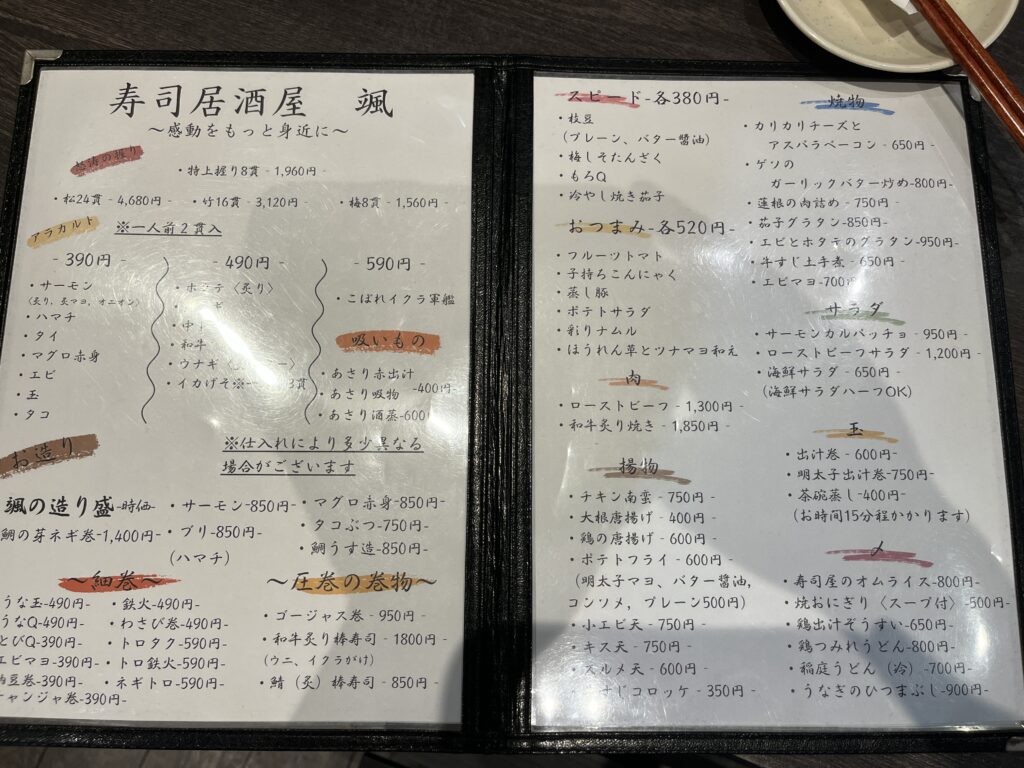 寿司居酒屋 颯
～感動をもっと身近に～
怒涛の握り
・特上握り8貫 - 1,960円 -
・松24貫 - 4,680円 -
・竹16貫 - 3,120円 -
・梅8貫 - 1,560円 -
アラカルト
※一人前2貫入
- 390円 -
・サーモン
(炙り、炙マヨ、オニオン)
・ハマチ
・タイ
・マグロ赤身
・エビ
・玉
・タコ
- 490円 -
・ホタテ〈炙り〉
・和牛
・ウナギ
・イカげそ※一 3貫
- 590円 -
・こぼれイクラ軍艦
吸いもの
・あさり赤出汁
・あさり吸物
-400円-
・あさり酒蒸-600
お造り
※仕入れにより多少異なる
場合がございます
颯の造り盛-時価-
鯛の芽ネギ巻-1,400円-
・サーモン-850円-
・ブリ-850円-
(ハマチ)
・マグロ赤身-850円-
・タコぶつ-750円-
・鯛うす造-850円-
～細巻～
うな玉-490円-
うなQ-490円-
とびQ-390円-
エビマヨ-390円-
納豆巻-390円-
チャンジャ巻-390円-
・鉄火-490円-
・わさび巻-490円-
・トロタク-590円-
・トロ鉄火-590円-
・ネギトロ-590円-
～圧巻の巻物～
・ゴージャス巻 - 950円 -
・和牛炙り棒寿司 - 1800円 -
(ウニ、イクラがけ)
・鯖(炙)棒寿司 - 850円 -
スピード-各380円-
・枝豆
(プレーン、バター醤油)
・梅しそたんざく
・もろQ
・冷やし焼き茄子
おつまみ-各520円-
・フルーツトマト
・子持ちこんにゃく
・蒸し豚
・ポテトサラダ
・彩りナムル
・ほうれん草とツナマヨ和え
肉
・ローストビーフ - 1,300円 -
・和牛炙り焼き - 1,850円 -
揚物
・チキン南蛮 - 750円 -
・大根唐揚げ - 400円 -
・鶏の唐揚げ - 600円 -
・ポテトフライ - 600円 -
(明太子マヨ、バター醤油、
コンソメ、プレーン500円)
・小エビ天 - 750円 -
・キス天 - 750円 -
・スルメ天 - 600円 -
すじコロッケ - 350円 -
焼物
・カリカリチーズと
アスパラベーコン - 650円 -
・ゲソの
ガーリックバター炒め-800円-
・蓮根の肉詰め - 750円 -
・茄子グラタン-850円-
・エビとホタテのグラタン-950円-
・牛すじ土手煮 - 650円 -
・エビマヨ-700円-
サラダ
・サーモンカルパッチョ - 950円-
・ローストビーフサラダ - 1,200円 -
・海鮮サラダ - 650円 -
(海鮮サラダハーフOK)
玉
・出汁巻 - 600円 -
・明太子出汁巻-750円-
・茶碗蒸し-400円-
(お時間15分程かかります)
〆
・寿司屋のオムライス-800円-
・焼おにぎり〈スープ付〉-500円-
・鶏出汁ぞうすい-650円-
・鶏つみれうどん-800円-
・稲庭うどん(冷)-700円-
・うなぎのひつまぶし-900円-